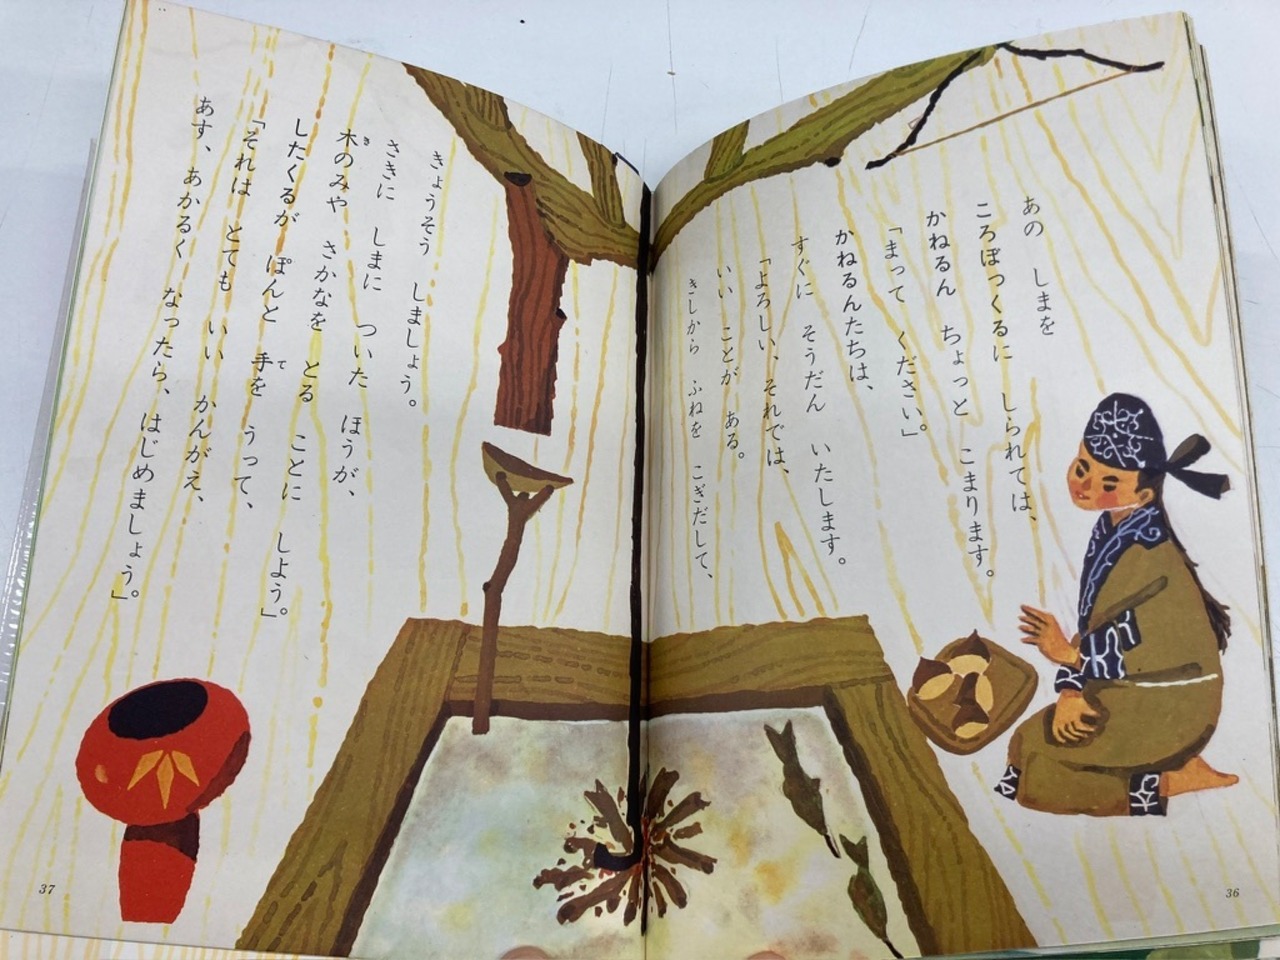 あの しまを
ころぼっくるに しられては、
かねるん ちょっと こまります。
「まって ください。」
かねるんたちは、
すぐに そうだん いたします。
「よろしい、それでは、
いい ことが ある。
きしから ふねを こぎだして、
36
きょうそう しましょう。
さきに しまに ついた ほうが、
木のみや さかなを とる ことに しよう。」
き
したくるが ぽんと 手を うって、
て
「それは とても いい かんがえ、
あす、あかるく なったら、はじめましょう。」
37